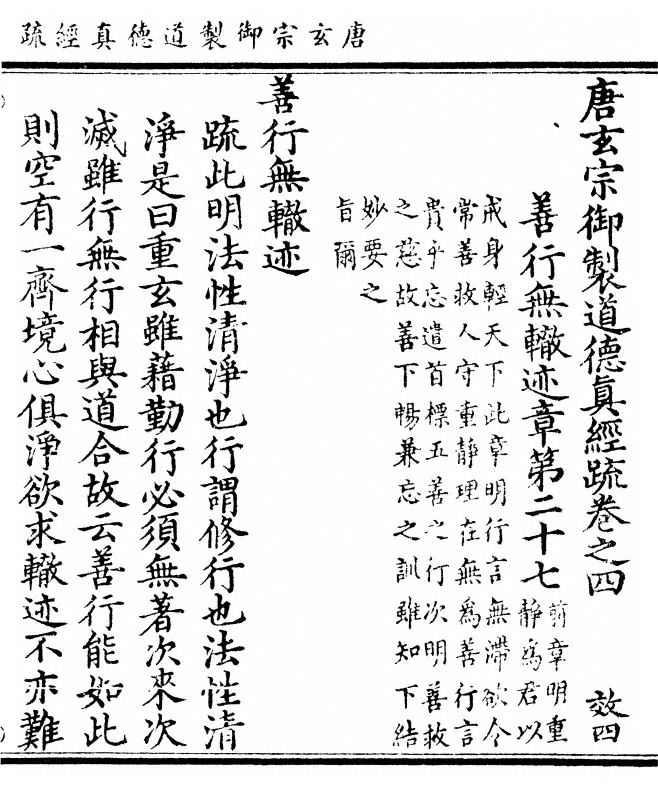 唐玄宗御製道德真經疏
唐玄宗御製道德眞經疏卷之四 效四
善行無轍迹章第二十七
前章明重
靜爲君以
戒身輕天下此章明行言無滯欲令
常善救人守重靜理在無爲善行言
貴乎忘遣首標五善之行次明善救
之慈故善下暢兼忘之訓雖知下結
妙要之
旨爾
善行無轍迹
疏此明法性清淨也行謂修行也法性清
淨是曰重玄雖藉勤行必須無著次來次
滅雖行無行相與道合故云善行能如此
則空有一齊境心俱淨欲求轍迹不亦難